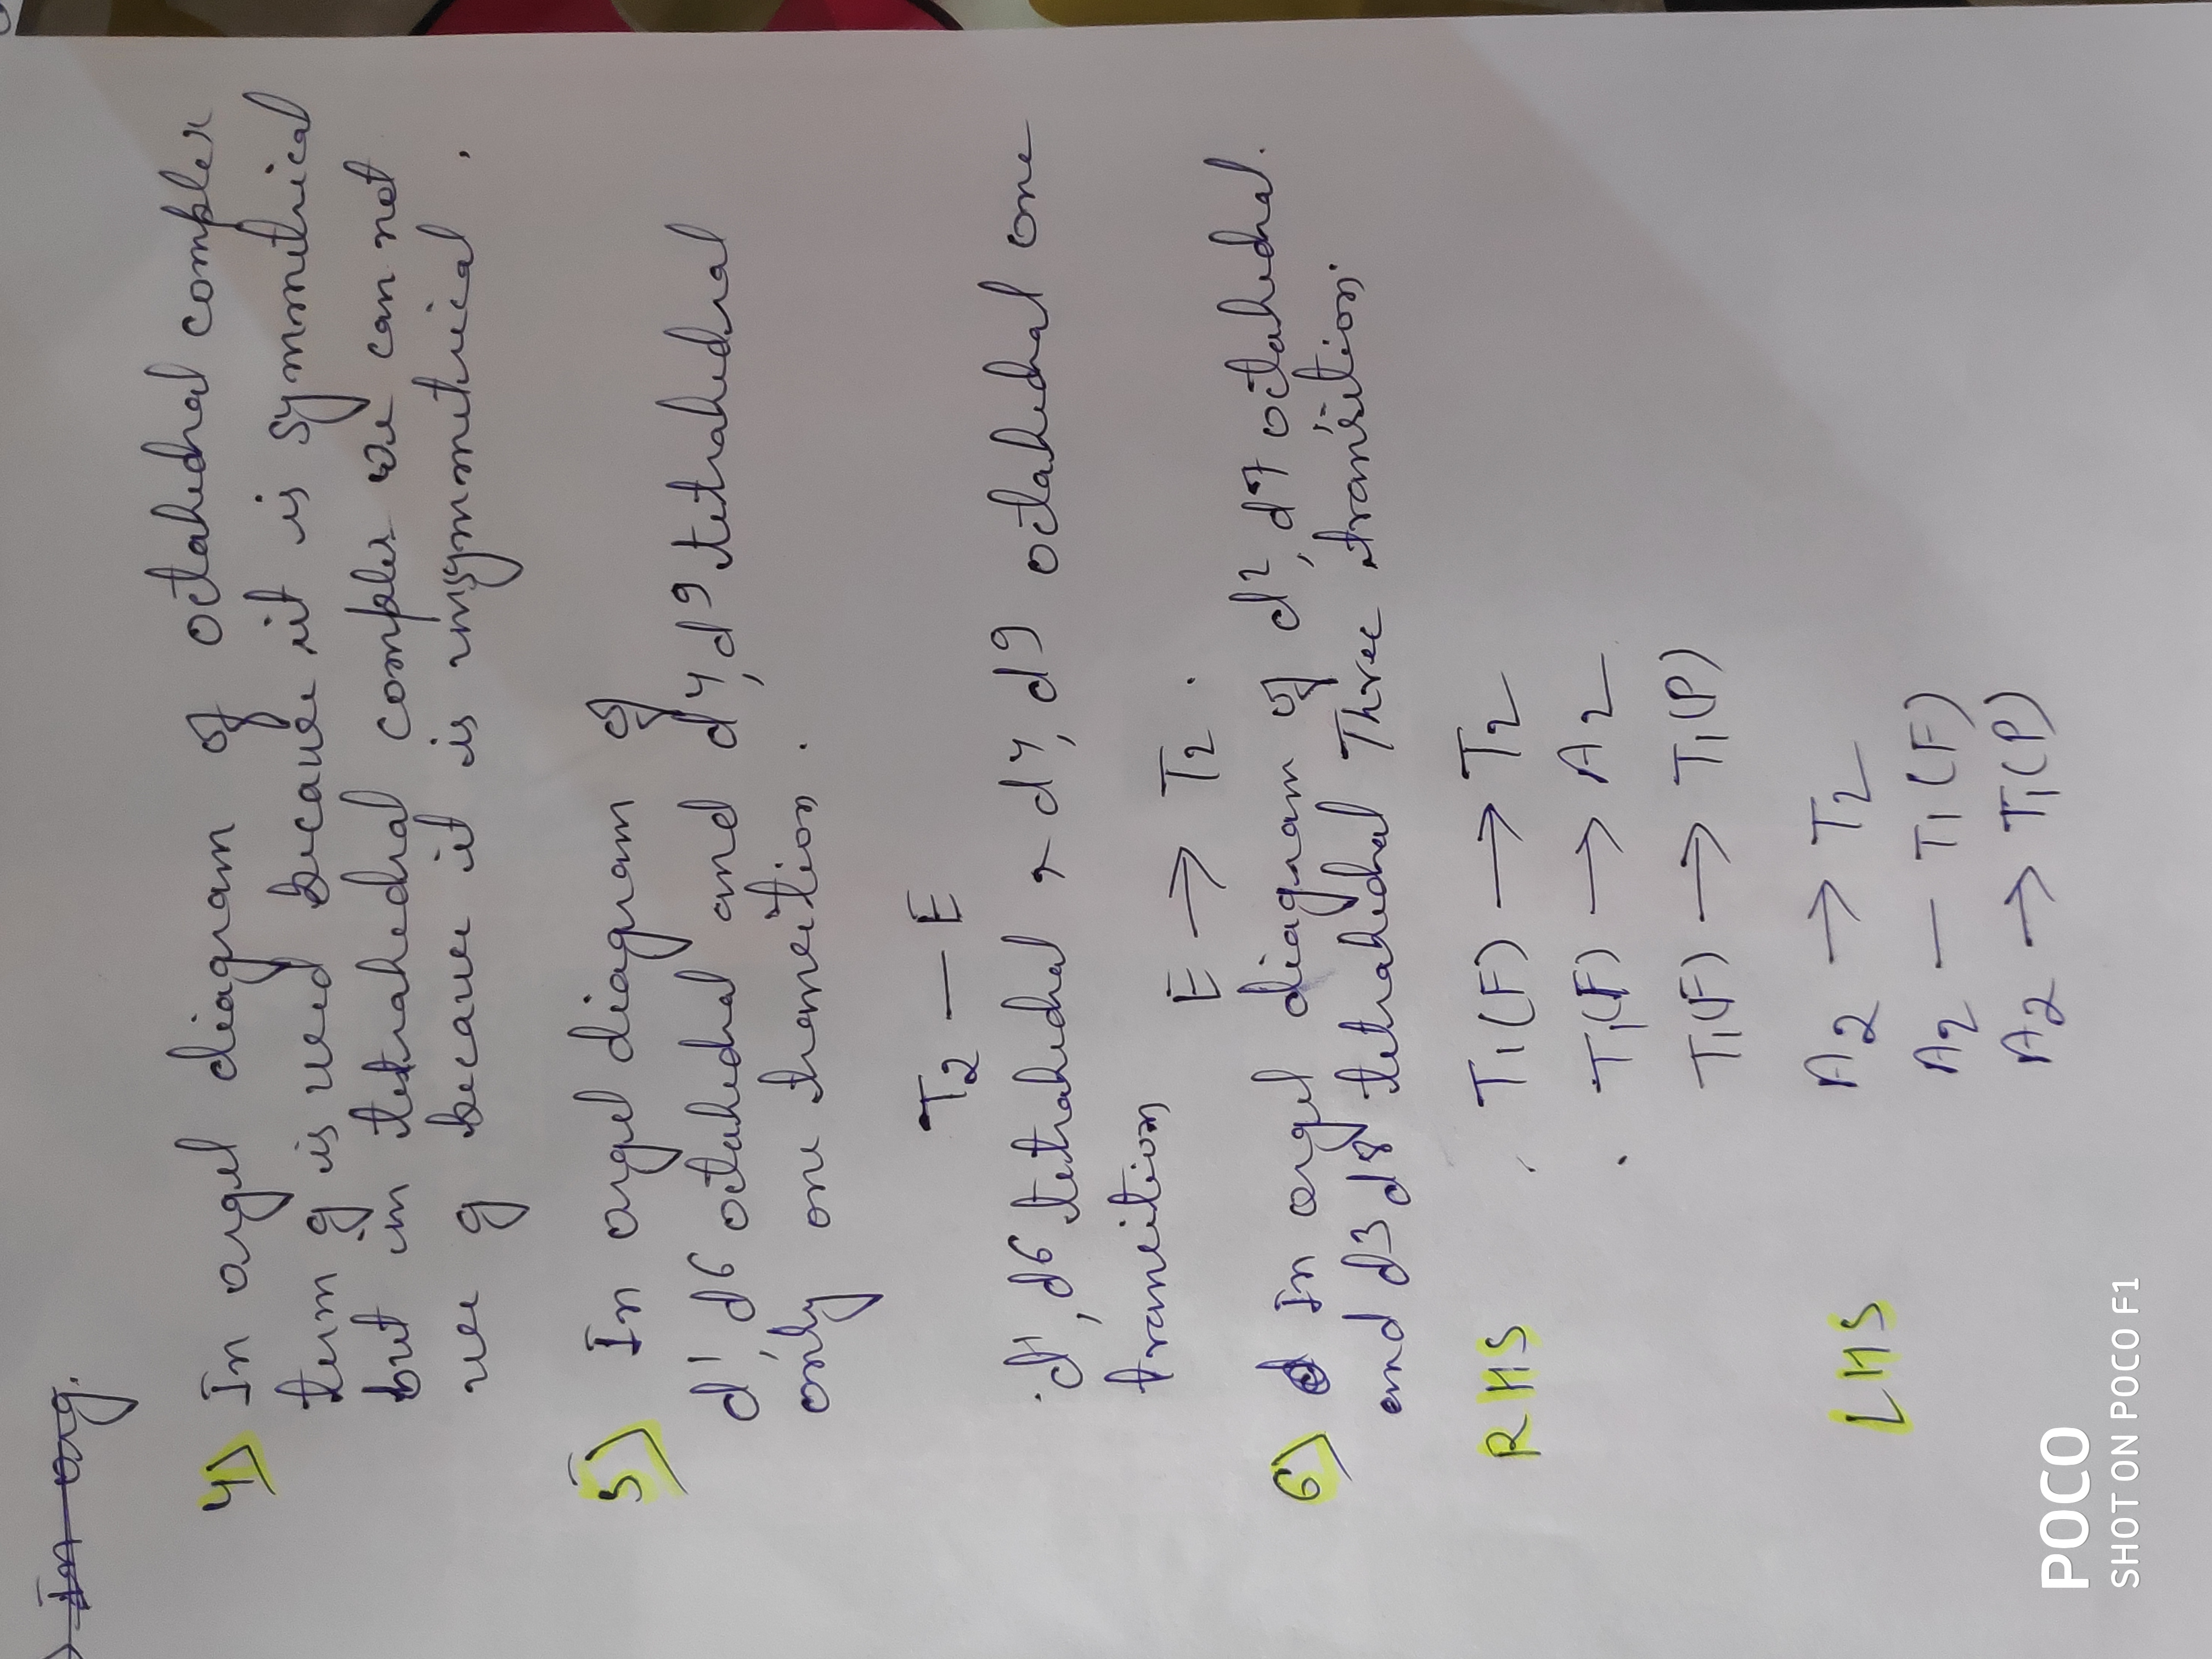 In org.
4) In orgel diagram of octahedral complex
term g is used because it is symmetrical
but in tetrahedral complex we can not
use g because it is unsymmetrical.
5) In orgel diagram of
d1, d6 octahedral and d4, d9 tetrahedral
only one transition.
T2 — E
d1, d6 tetrahedral & d4, d9 octahedral one
transition E → T2.
6) In orgel diagram of d2, d7 octahedral.
and d3 d8 tetrahedral Three transition.
RHS T1(F) → T2
T1(F) → A2
T1(F) → T1(P)
LHS A2 → T2
A2 — T1(F)
A2 → T1(P)
POCO
SHOT ON POCO F1